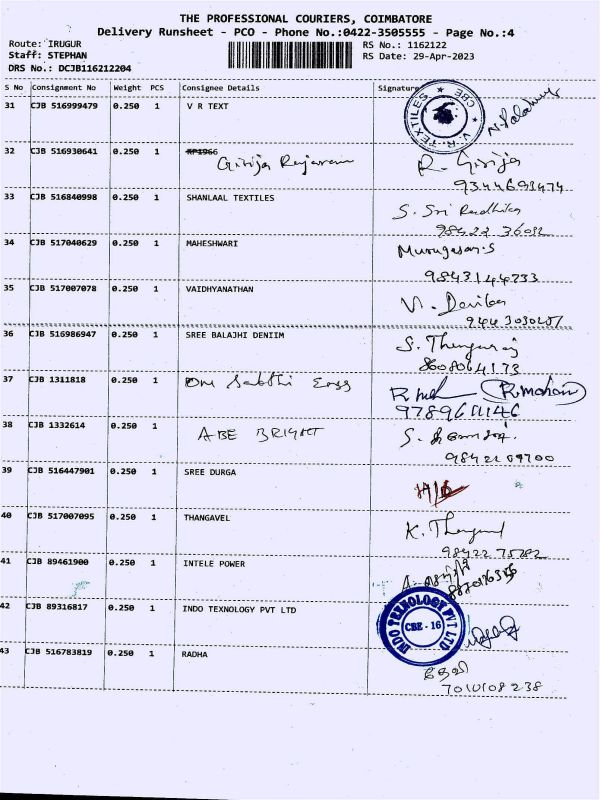 THE PROFESSIONAL COURIERS, COIMBATORE
Delivery Runsheet - PCO - Phone No.:0422-3505555 - Page No.:4
Route: IRUGUR
Staff: STEPHAN
DRS No.: DCJB116212204
RS No.: 1162122
RS Date: 29-Apr-2023
S No Consignment No Weight PCS Consignee Details Signature
31 CJB 516999479 0.250 1 V R TEXT
V.R.TEXTILES CBE
32 CJB 516930641 0.250 1 Girija Rajaram R. Girija
9344693474
33 CJB 516840998 0.250 1 SHANLAAL TEXTILES S. Sri Radhika
98422 36032
34 CJB 517040629 0.250 1 MAHESHWARI Murugesan.S
9843144733
35 CJB 517007078 0.250 1 VAIDHYANATHAN
36 CJB 516986947 0.250 1 SREE BALAJHI DENIIM S. Thenguraj
8608064173
37 CJB 1311818 0.250 1 Om Sakthi Engg R.mohan
9789611146
38 CJB 1332614 0.250 1 ABE BRIGHT
9842209700
39 CJB 516447901 0.250 1 SREE DURGA
40 CJB 517007095 0.250 1 THANGAVEL K. Thangavel
98422 75282
41 CJB 89461900 0.250 1 INTELE POWER
42 CJB 89316817 0.250 1 INDO TEXNOLOGY PVT LTD
INDO TEXNOLOGY PVT LTD CBE - 16
43 CJB 516783819 0.250 1 RADHA தேவி
7010108238